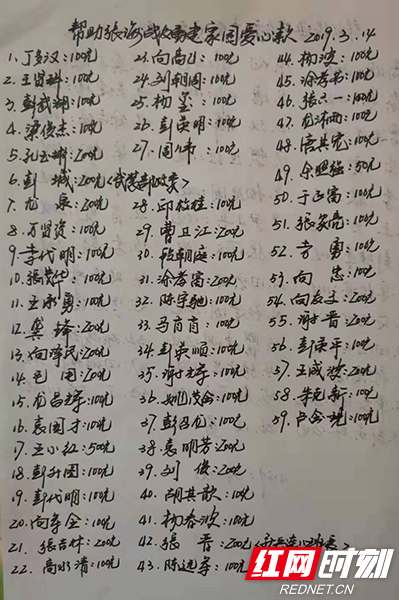 帮助张海战友重建家园爱心款 2019.3.14
1、丁多汉:100元
2、王贤科:100元
3、彭武湖:100元
4、梁俊杰:100元
5、孔玉:200元
6、彭城:200元
7、龙:200元
8、万贤:100元
9、李代明:100元
10、张:100元
11、王永勇:100元
12、龚:200元
13、向泽民:200元
14、毛:200元
15、龙昌:100元
16、袁国才:100元
17、王小红:500元
18、彭升国:100元
19、彭代明:100元
20、向孝全:100元
21、张吉林:200元
22、高水清:100元
23、向高:100元
24、刘朝国:100元
25、杨:100元
26、彭英明:200元
27、周伟:100元
28、邱枝桂:100元
29、曹卫江:200元
30、陈朝庭:100元
31、涂孝富:200元
32、陈宇驰:100元
33、马育育:100元
34、彭英顺:100元
35、谢:100元
36、姚茂:100元
37、彭召龙:100元
38、袁明芳:200元
39、刘俊:200元
40、胡其歆:100元
41、杨春波:100元
42、张晋:200元
43、陈远:100元
44、杨波:100元
45、涂孝书:100元
46、张六一:100元
47、龙:100元
48、:100元
49、余照:50元
50、于正富:100元
51、张家亮:100元
52、方勇:100元
53、向忠:100元
54、向友:200元
55、谢晋:200元
56、彭荣平:100元
57、王成:200元
58、朱克新:100元
59、卢:100元
红网时刻
REDNET.CN